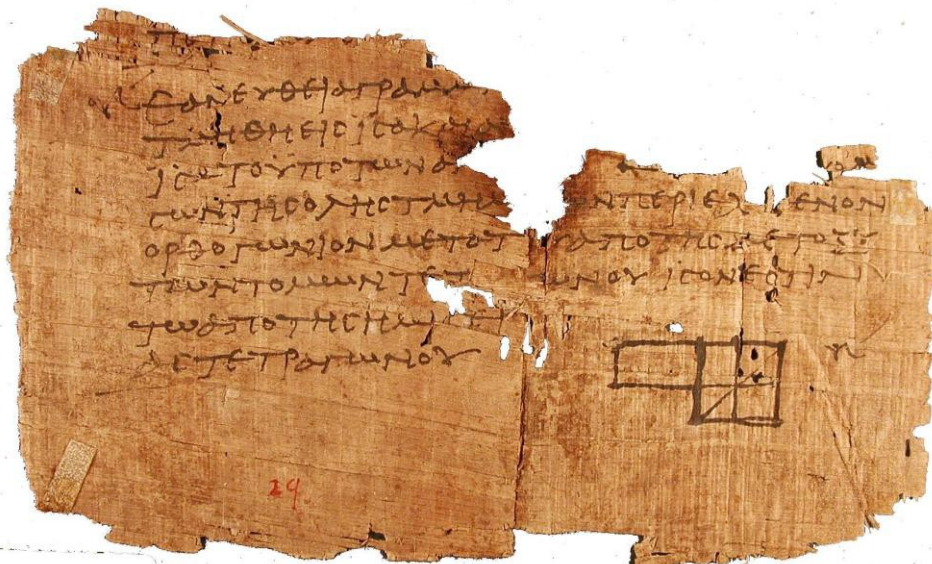 ΕΑΝΕΥΘΕΙΑΓΡΑΜΜ
ΤΜΗΘΗΕΙϹΙϹΑΚΑΙΑΝ
ΙϹΑΤΟΥΠΟΤΩΝΑΝ
ϹΩΝΤΗϹΟΛΗϹΤΜΗΜ ΩΝΠΕΡΙΕΧ ΜΕΝΟΝ
ΟΡΘΟΓΩΝΙΟΝΜΕΤΑΤ ΑΠΟΤΗϹΜΕΤΟΞΥ
ΤΩΝΤΟΜΩΝΤΕΤ ΩΝΟΥΙϹΟΝΕϹΤΙΝ
ΤΩΑΠΟΤΗϹΗΜΙϹΕΙ
ΑϹΤΕΤΡΑΓΩΝΟΥ
29